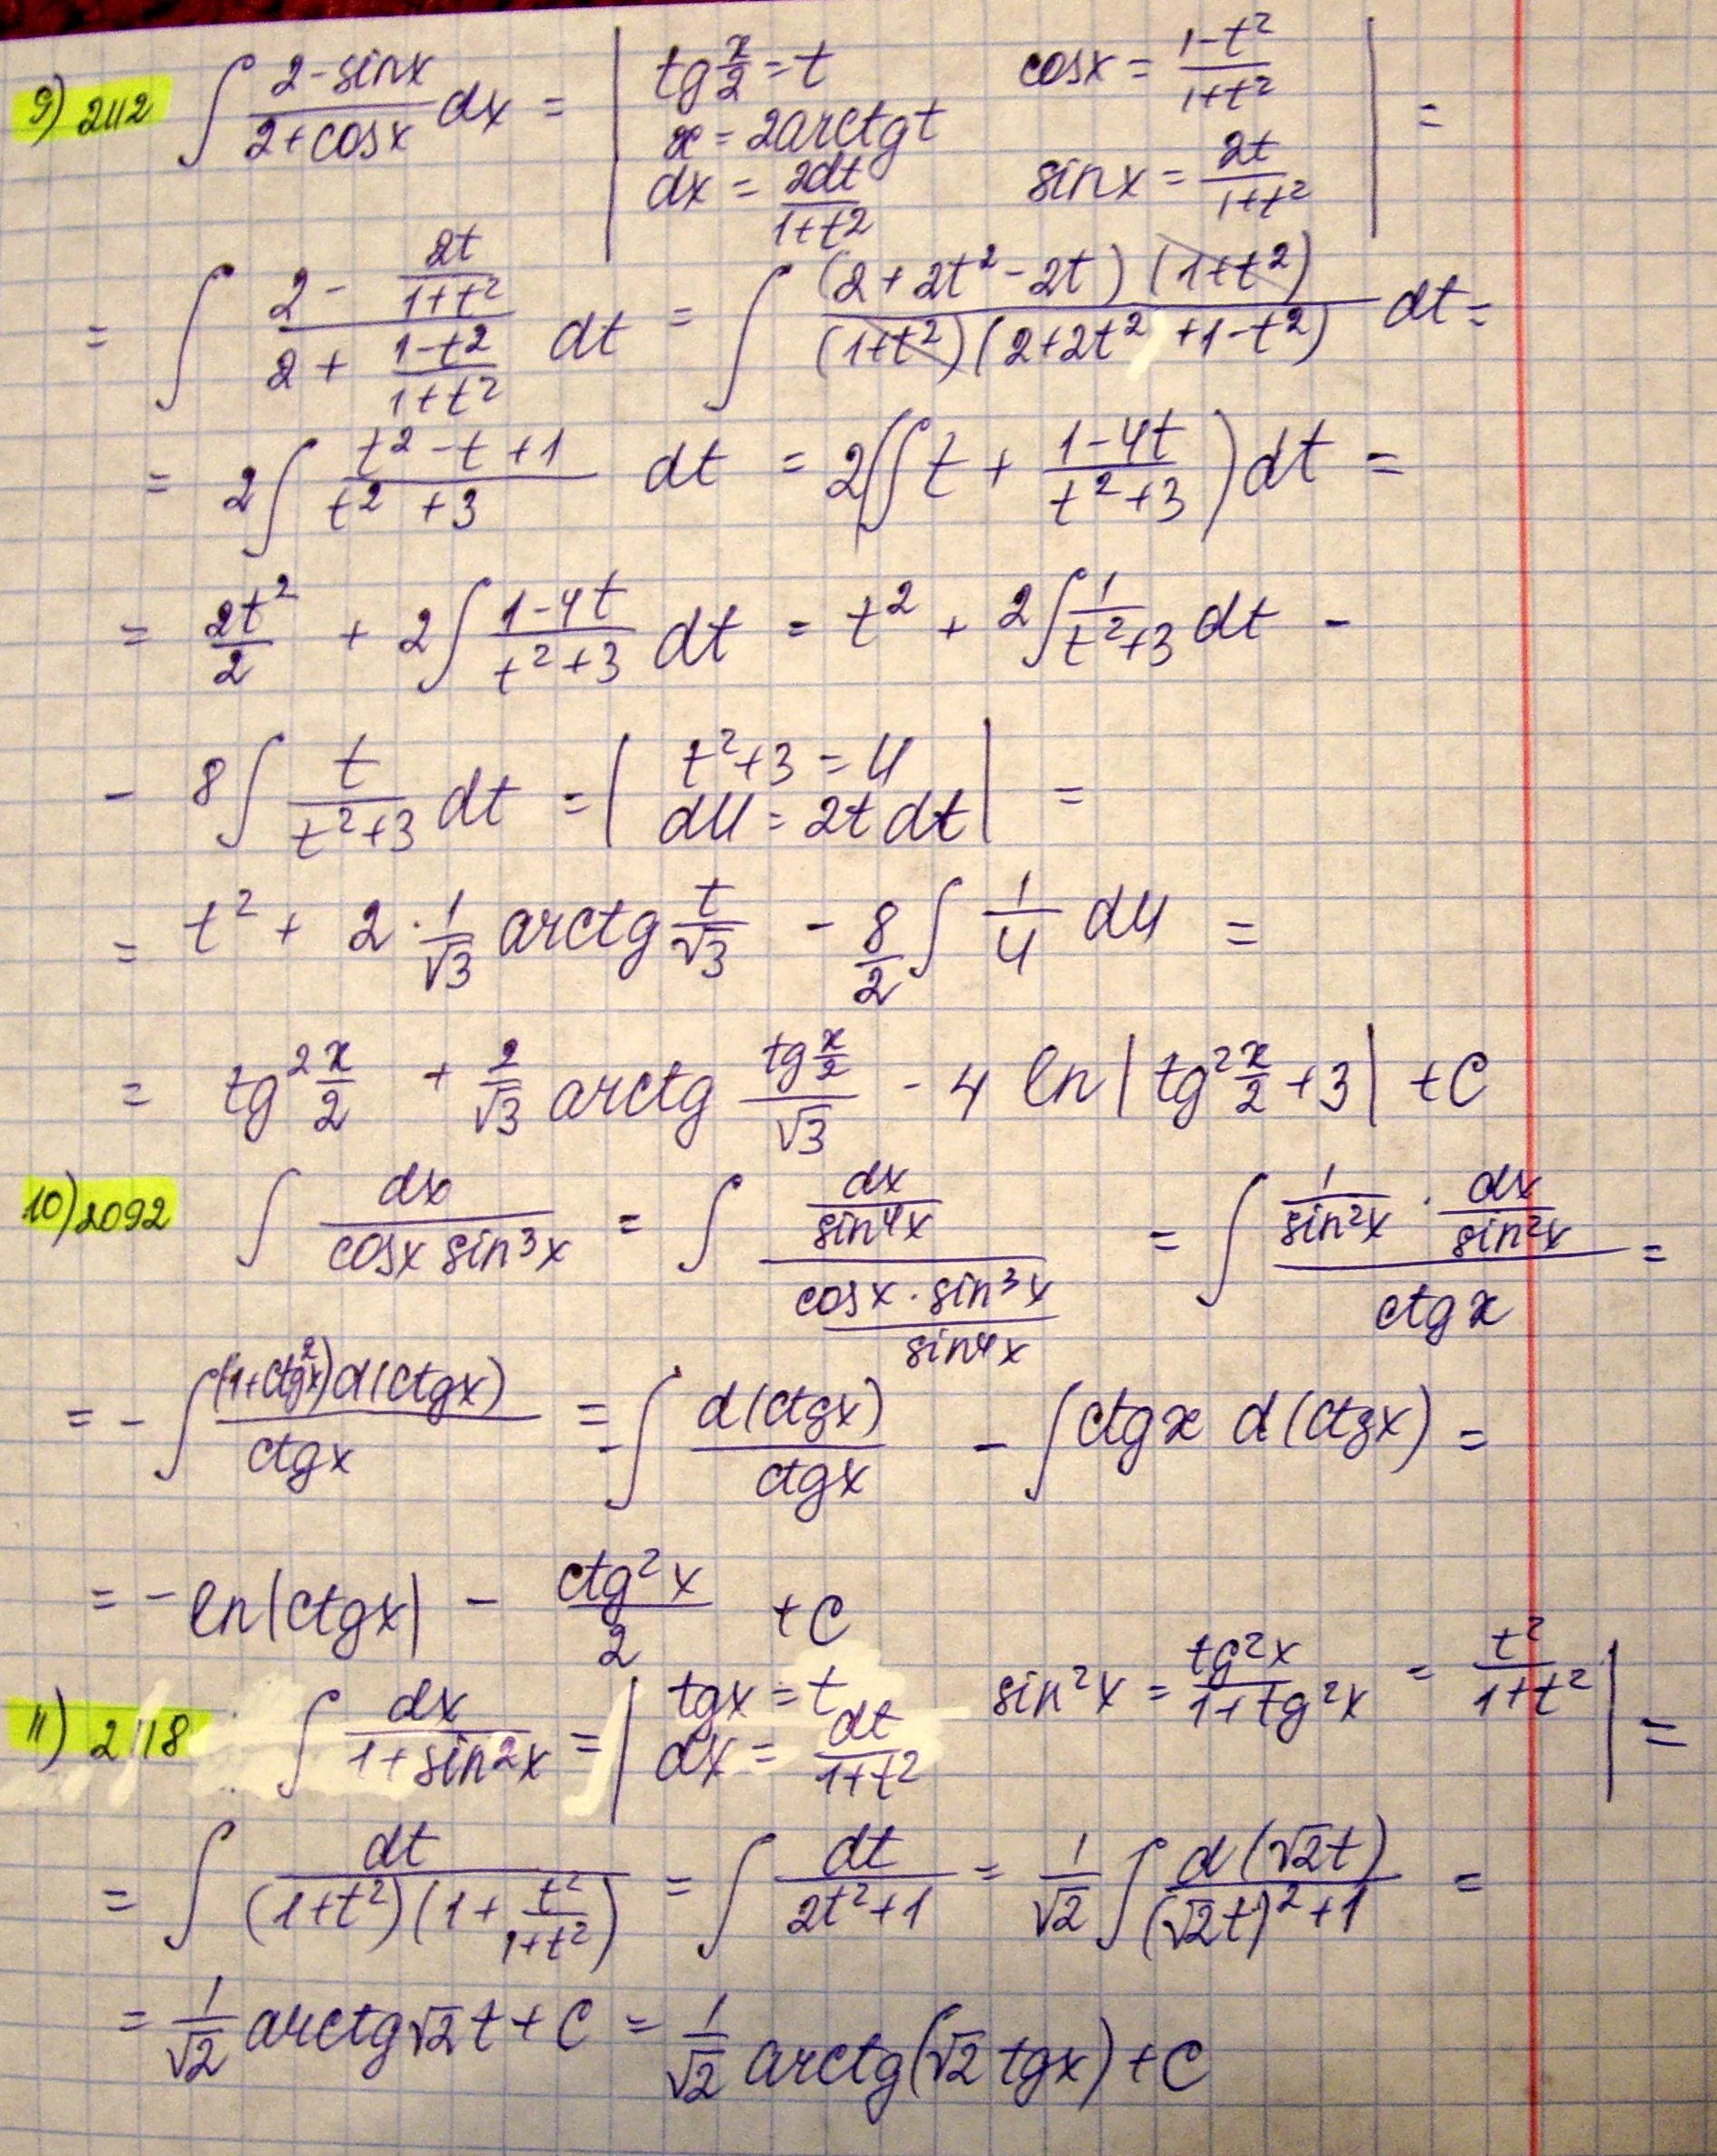 9) 2112 ∫ (2-sinx)/(2+cosx) dx = | tg x/2 = t cosx = (1-t²)/(1+t²) | =
x = 2arctgt
dx = 2dt/(1+t²) sinx = 2t/(1+t²)
= ∫ (2 - 2t/(1+t²))/(2 + (1-t²)/(1+t²)) dt = ∫ ((2+2t²-2t)(1+t²))/((1+t²)(2+2t²+1-t²)) dt =
= 2∫ (t²-t+1)/(t²+3) dt = 2(∫ t + (1-4t)/(t²+3)) dt =
= 2t²/2 + 2∫ (1-4t)/(t²+3) dt = t² + 2∫ 1/(t²+3) dt -
- 8∫ t/(t²+3) dt = | t²+3 = u | =
du = 2t dt
= t² + 2 · 1/√3 arctg t/√3 - 8/2 ∫ 1/u du =
= tg² x/2 + 2/√3 arctg (tg x/2)/√3 - 4 ln|tg² x/2 + 3| + C
10) 2092 ∫ dx/(cosx sin³x) = ∫ (dx/sin⁴x)/((cosx · sin³x)/sin⁴x) = ∫ (1/sin²x · dx/sin²x)/ctgx =
= - ∫ ((1+ctg²x)d(ctgx))/ctgx = - ∫ d(ctgx)/ctgx - ∫ ctgx d(ctgx) =
= - ln|ctgx| - ctg²x/2 + C
11) 2118 ∫ dx/(1+sin²x) = | tgx = t sin²x = tg²x/(1+tg²x) = t²/(1+t²) | =
dx = dt/(1+t²)
= ∫ dt/((1+t²)(1+t²/(1+t²))) = ∫ dt/(2t²+1) = 1/√2 ∫ d(√2t)/((√2t)²+1) =
= 1/√2 arctg√2t + C = 1/√2 arctg(√2 tgx) + C